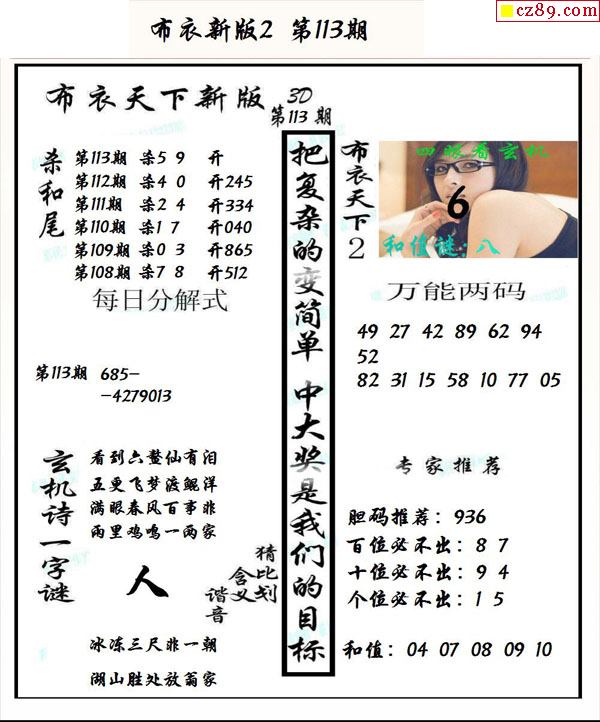 cz89.com
布衣新版2 第113期
布衣天下新版 3D
第113期
杀和尾
第113期 杀5 9 开
第112期 杀4 0 开245
第111期 杀2 4 开334
第110期 杀1 7 开040
第109期 杀0 3 开865
第108期 杀7 8 开512
每日分解式
第113期 685-
-4279013
玄机诗一字谜
看到六鳌仙有泪
五更飞梦渡鲲洋
满眼春风百事非
两里鸡鸣一两家
人
猜比划
含义
谐音
冰冻三尺非一朝
湖山胜处放翁家
把复杂的变简单 中大奖是我们的目标
布衣天下2
四眼看玄机
6
和值谜:八
万能两码
49 27 42 89 62 94
52
82 31 15 58 10 77 05
专家推荐
胆码推荐:936
百位必不出:8 7
十位必不出:9 4
个位必不出:1 5
和值:04 07 08 09 10